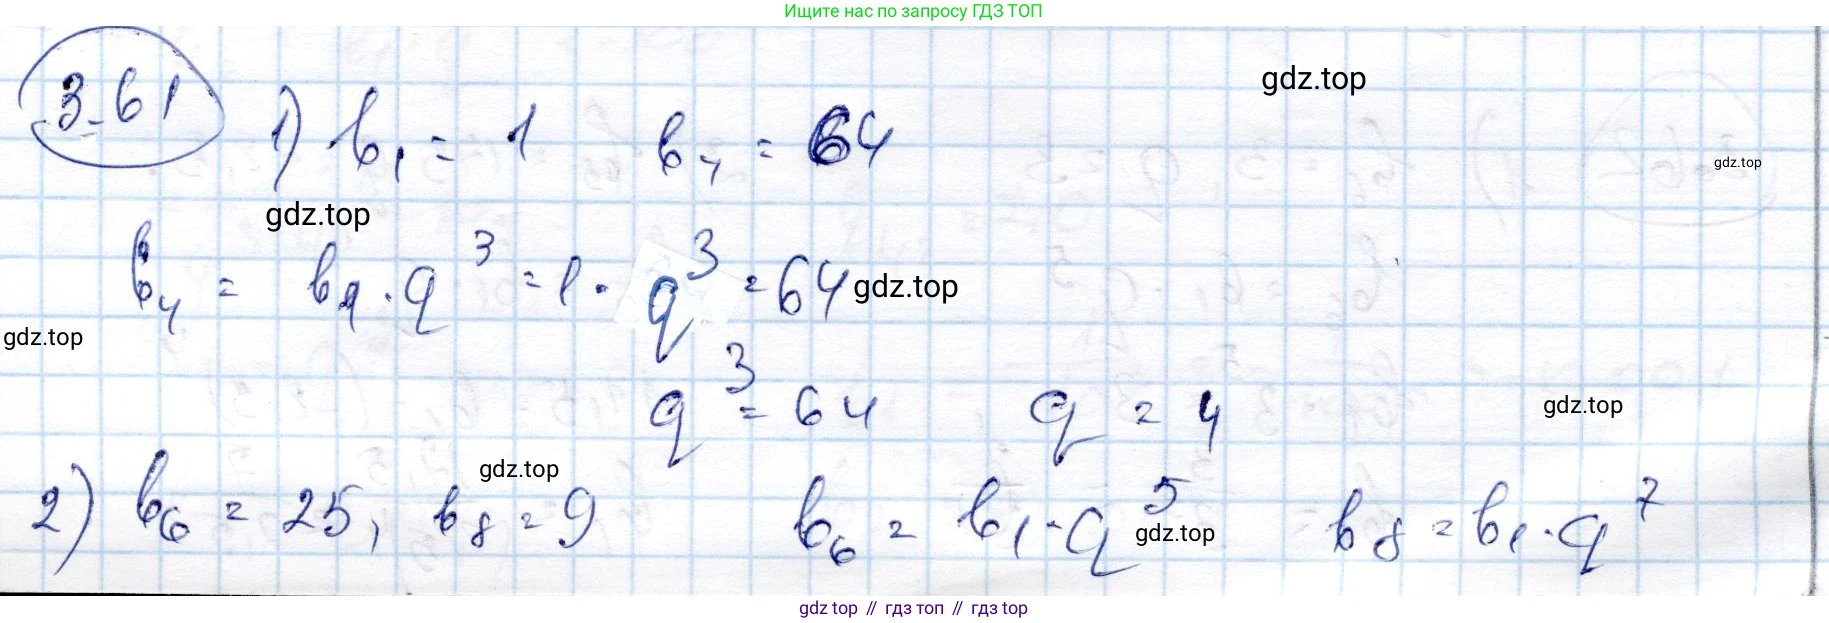 Ищите нас по запросу ГДЗ ТОП
3.61 1) b₁ = 1 b₄ = 64
gdz.top
gdz.top
gdz.top
b₄ = b₁ · q³ = 1 · q³ = 64
gdz.top
gdz.top
q³ = 64 q = 4
gdz.top
gdz.top
2) b₆ = 25, b₈ = 9 b₆ = b₁ · q⁵ b₈ = b₁ · q⁷
gdz.top
gdz top // гдз топ // гдз top